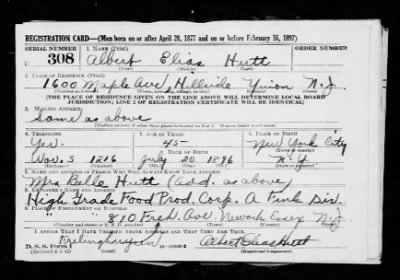 REGISTRATION CARD—(Men born on or after April 28, 1877 and on or before February 16, 1897)
SERIAL NUMBER 1. NAME (Print) ORDER NUMBER
U 308 Albert Elias Hutt
(First) (Middle) (Last)
2. PLACE OF RESIDENCE (Print)
1600 Maple Ave Hillside Union N.J.
[THE PLACE OF RESIDENCE GIVEN ON THE LINE ABOVE WILL DETERMINE LOCAL BOARD
JURISDICTION; LINE 2 OF REGISTRATION CERTIFICATE WILL BE IDENTICAL]
3. MAILING ADDRESS
Same as above
4. TELEPHONE 5. AGE IN YEARS 6. PLACE OF BIRTH
Yes. 45 New York City
DATE OF BIRTH
3 1216 July 20 1896 N.Y.
7. NAME AND ADDRESS OF PERSON WHO WILL ALWAYS KNOW YOUR ADDRESS
Mrs Belle Hutt (add. as above)
8. EMPLOYER'S NAME AND ADDRESS
High Grade Food Prod. Corp. A Fink Div.
9. PLACE OF EMPLOYMENT OR BUSINESS
810 Fred. Ave. Newark Essex N.J.
I AFFIRM THAT I HAVE VERIFIED ABOVE ANSWERS AND THAT THEY ARE TRUE.
Frelinghuysen
D. S. S. Form 1 Albert Elias Hutt